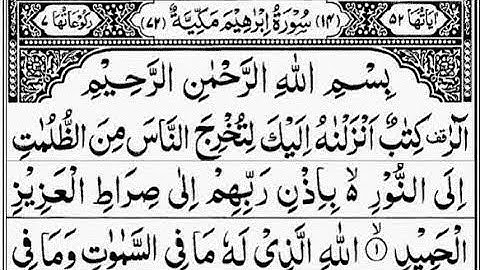 اٰیَاتُهَا ٥٢ (١٤) سُوْرَةُ اِبْرٰهِیْمَ مَكِّیَّةٌ (٧٢) رُكُوْعَاتُهَا ٧
بِسْمِ اللّٰهِ الرَّحْمٰنِ الرَّحِیْمِ
الٓرٰ قف كِتٰبٌ اَنْزَلْنٰهُ اِلَیْكَ لِتُخْرِجَ النَّاسَ مِنَ الظُّلُمٰتِ
اِلَی النُّوْرِ ۙ۬ بِاِذْنِ رَبِّهِمْ اِلٰی صِرَاطِ الْعَزِیْزِ
الْحَمِیْدِ ۙ﴿١﴾ اللّٰهِ الَّذِیْ لَهٗ مَا فِی السَّمٰوٰتِ وَمَا فِی